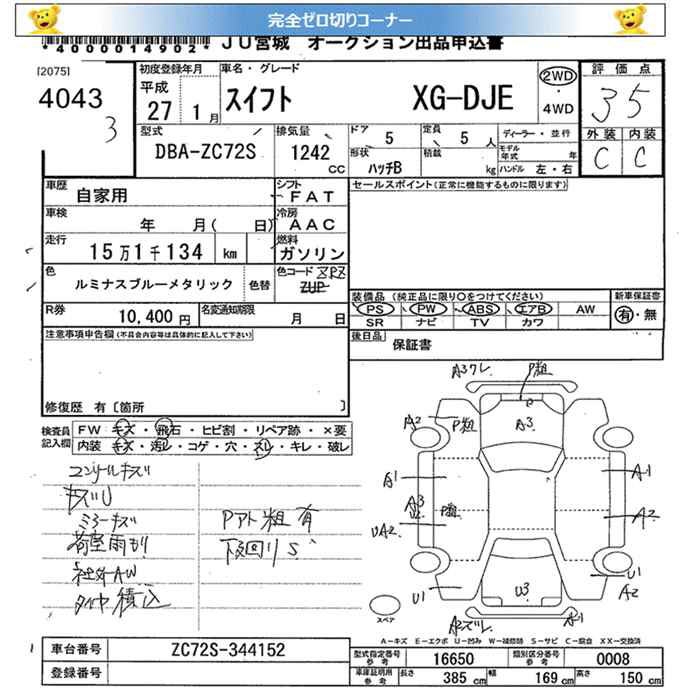 完全ゼロ切りコーナー
*4000014902* JU宮城 オークション出品申込書
[2075]
4043
3
初度登録年月
平成
27 1 月
車名・グレード
スイフト XG-DJE
2WD
・
4WD
評価点
35
外装 内装
C C
型式
DBA-ZC72S
排気量
1242
CC
ドア 5
定員 5 人
形状
ハッチB
積載
kg
ディーラー・並行
モデル年式 年
ハンドル 左・右
車歴 自家用
シフト FAT
車検 年 月( 日)
冷房 AAC
走行 15万1千134 km
燃料 ガソリン
色 ルミナスブルーメタリック
色替
色コード ZUP
R券 10,400 円
名変通知期限 月 日
セールスポイント(正常に機能するものに限ります)
装備品(純正品に限り○をつけてください)
PS PW ABS エアB AW
SR ナビ TV カワ
新車保証書
有・無
後日品 保証書
注意事項申告欄(不具合内容等は具体的に記入して下さい)
修復歴 有〔箇所 〕
検査員記入欄
FW キズ・飛石・ヒビ割・リペア跡・×要
内装 キズ・汚レ・コゲ・穴・スレ・キレ・破レ
キズU
ミラーキズ
荷室雨もり
社外AW
タイヤ積込
Pアト粗有
下廻りS
P粗
A2
P粗
A3
A1
A-1
A3
P粗
UA2
A2
U1
U3
U1
A2
A-1
スペア
A-キズ E-エクボ U-凹み W-補修跡 S-サビ C-腐食 XX-交換済
車台番号 ZC72S-344152
登録番号
型式指定番号 参考 16650
類別区分番号 参考 0008
車庫証明用 参考 長さ 385 cm 幅 169 cm 高さ 150 cm